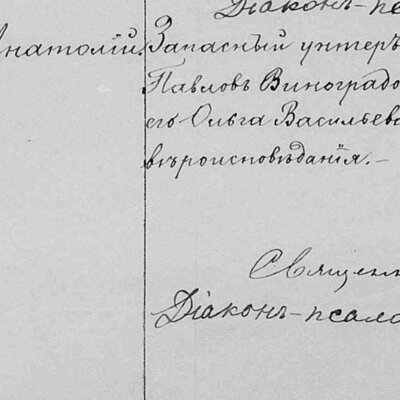 Діаконъ-пса
Анатолій. Запасный унтеръ
Павловъ Виноградо
его Ольга Васильева
вѣроисповѣданія.-
Священ
Діаконъ-псало